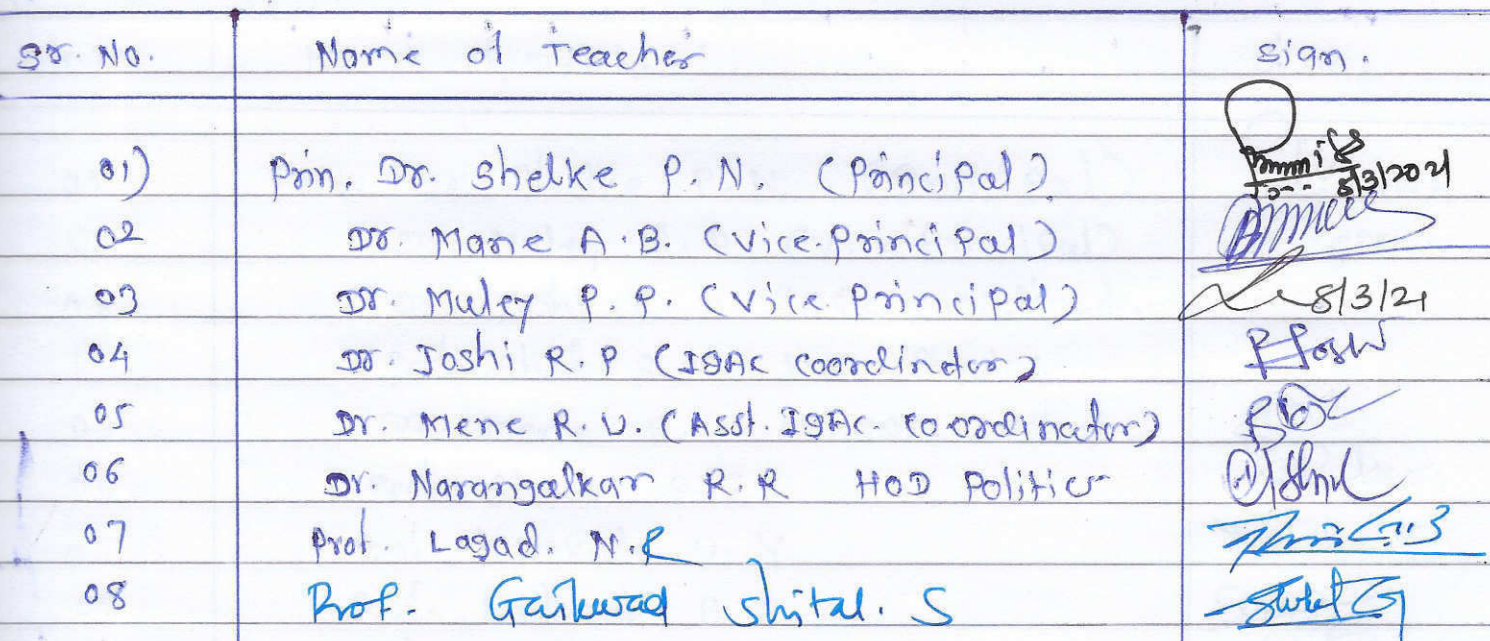 Sr. No. Name of Teacher Sign.
01) Prin. Dr. Shelke P. N. (Principal) 8/3/2021
02 Dr. Mane A. B. (Vice. Principal)
03 Dr. Muley P. P. (Vice Principal) 8/3/21
04 Dr. Joshi R. P (IQAC Coordinator) Joshi
05 Dr. Mene R. U. (Asst. IQAC. Coordinator)
06 Dr. Narangalkar R.R HOD Politics
07 Prof. Lagad. N.R
08 Prof. Gaikwad Shital. S